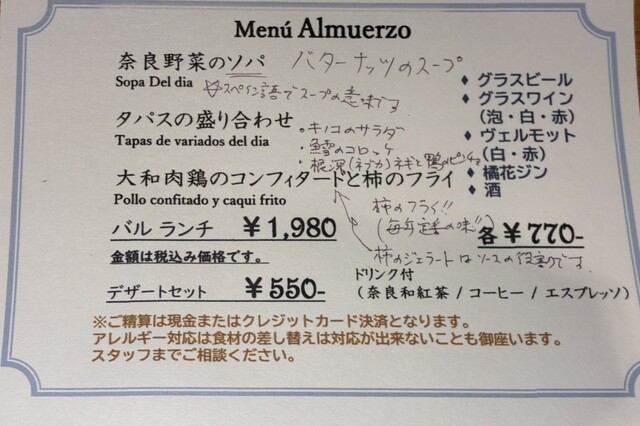 Menú Almuerzo
奈良野菜のソパ バターナッツのスープ
Sopa Del dia ☆スペイン語でスープの意味です
タパスの盛り合わせ
Tapas de variados del dia
・キノコのサラダ
・鱈のコロッケ
・根深(ネブカ)ネギと鴨のピンチョ
大和肉鶏のコンフィタードと柿のフライ
Pollo confitado y caqui frito
柿のフライ!!
(毎年定番の味!!)
柿のジェラートはソースの役割りです。
バル ランチ ¥1,980
金額は税込み価格です。
デザートセット ¥550-
ドリンク付
(奈良和紅茶 / コーヒー / エスプレッソ)
◆ グラスビール
◆ グラスワイン
(泡・白・赤)
◆ ヴェルモット
(白・赤)
◆ 橘花ジン
◆ 酒
各 ¥770-
※ご精算は現金またはクレジットカード決済となります。
アレルギー対応は食材の差し替えは対応が出来ないことも御座います。
スタッフまでご相談ください。